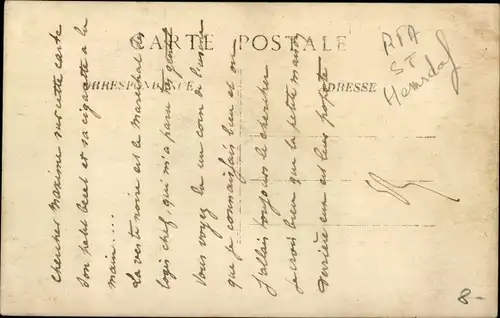 CARTE POSTALE
CORRESPONDANCE
ADRESSE
Cherchez Maxime sur cette carte
son petit bébé et sa cigarette à la
main....
La veste noire est le maréchal des
logis chef, qui m'a paru très gentil
Vous voyez là un coin de l'usine
que je connaissais bien et où
j'allais toujours le chercher
Je crois bien que la petite maison
derrière eux est leur
RPA
ST
8-